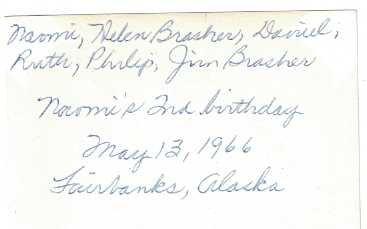 Naomi, Helen Brasher, Daniel,
Ruth, Philip, Jim Brasher
Naomi's 2nd birthday
May 13, 1966
Fairbanks, Alaska